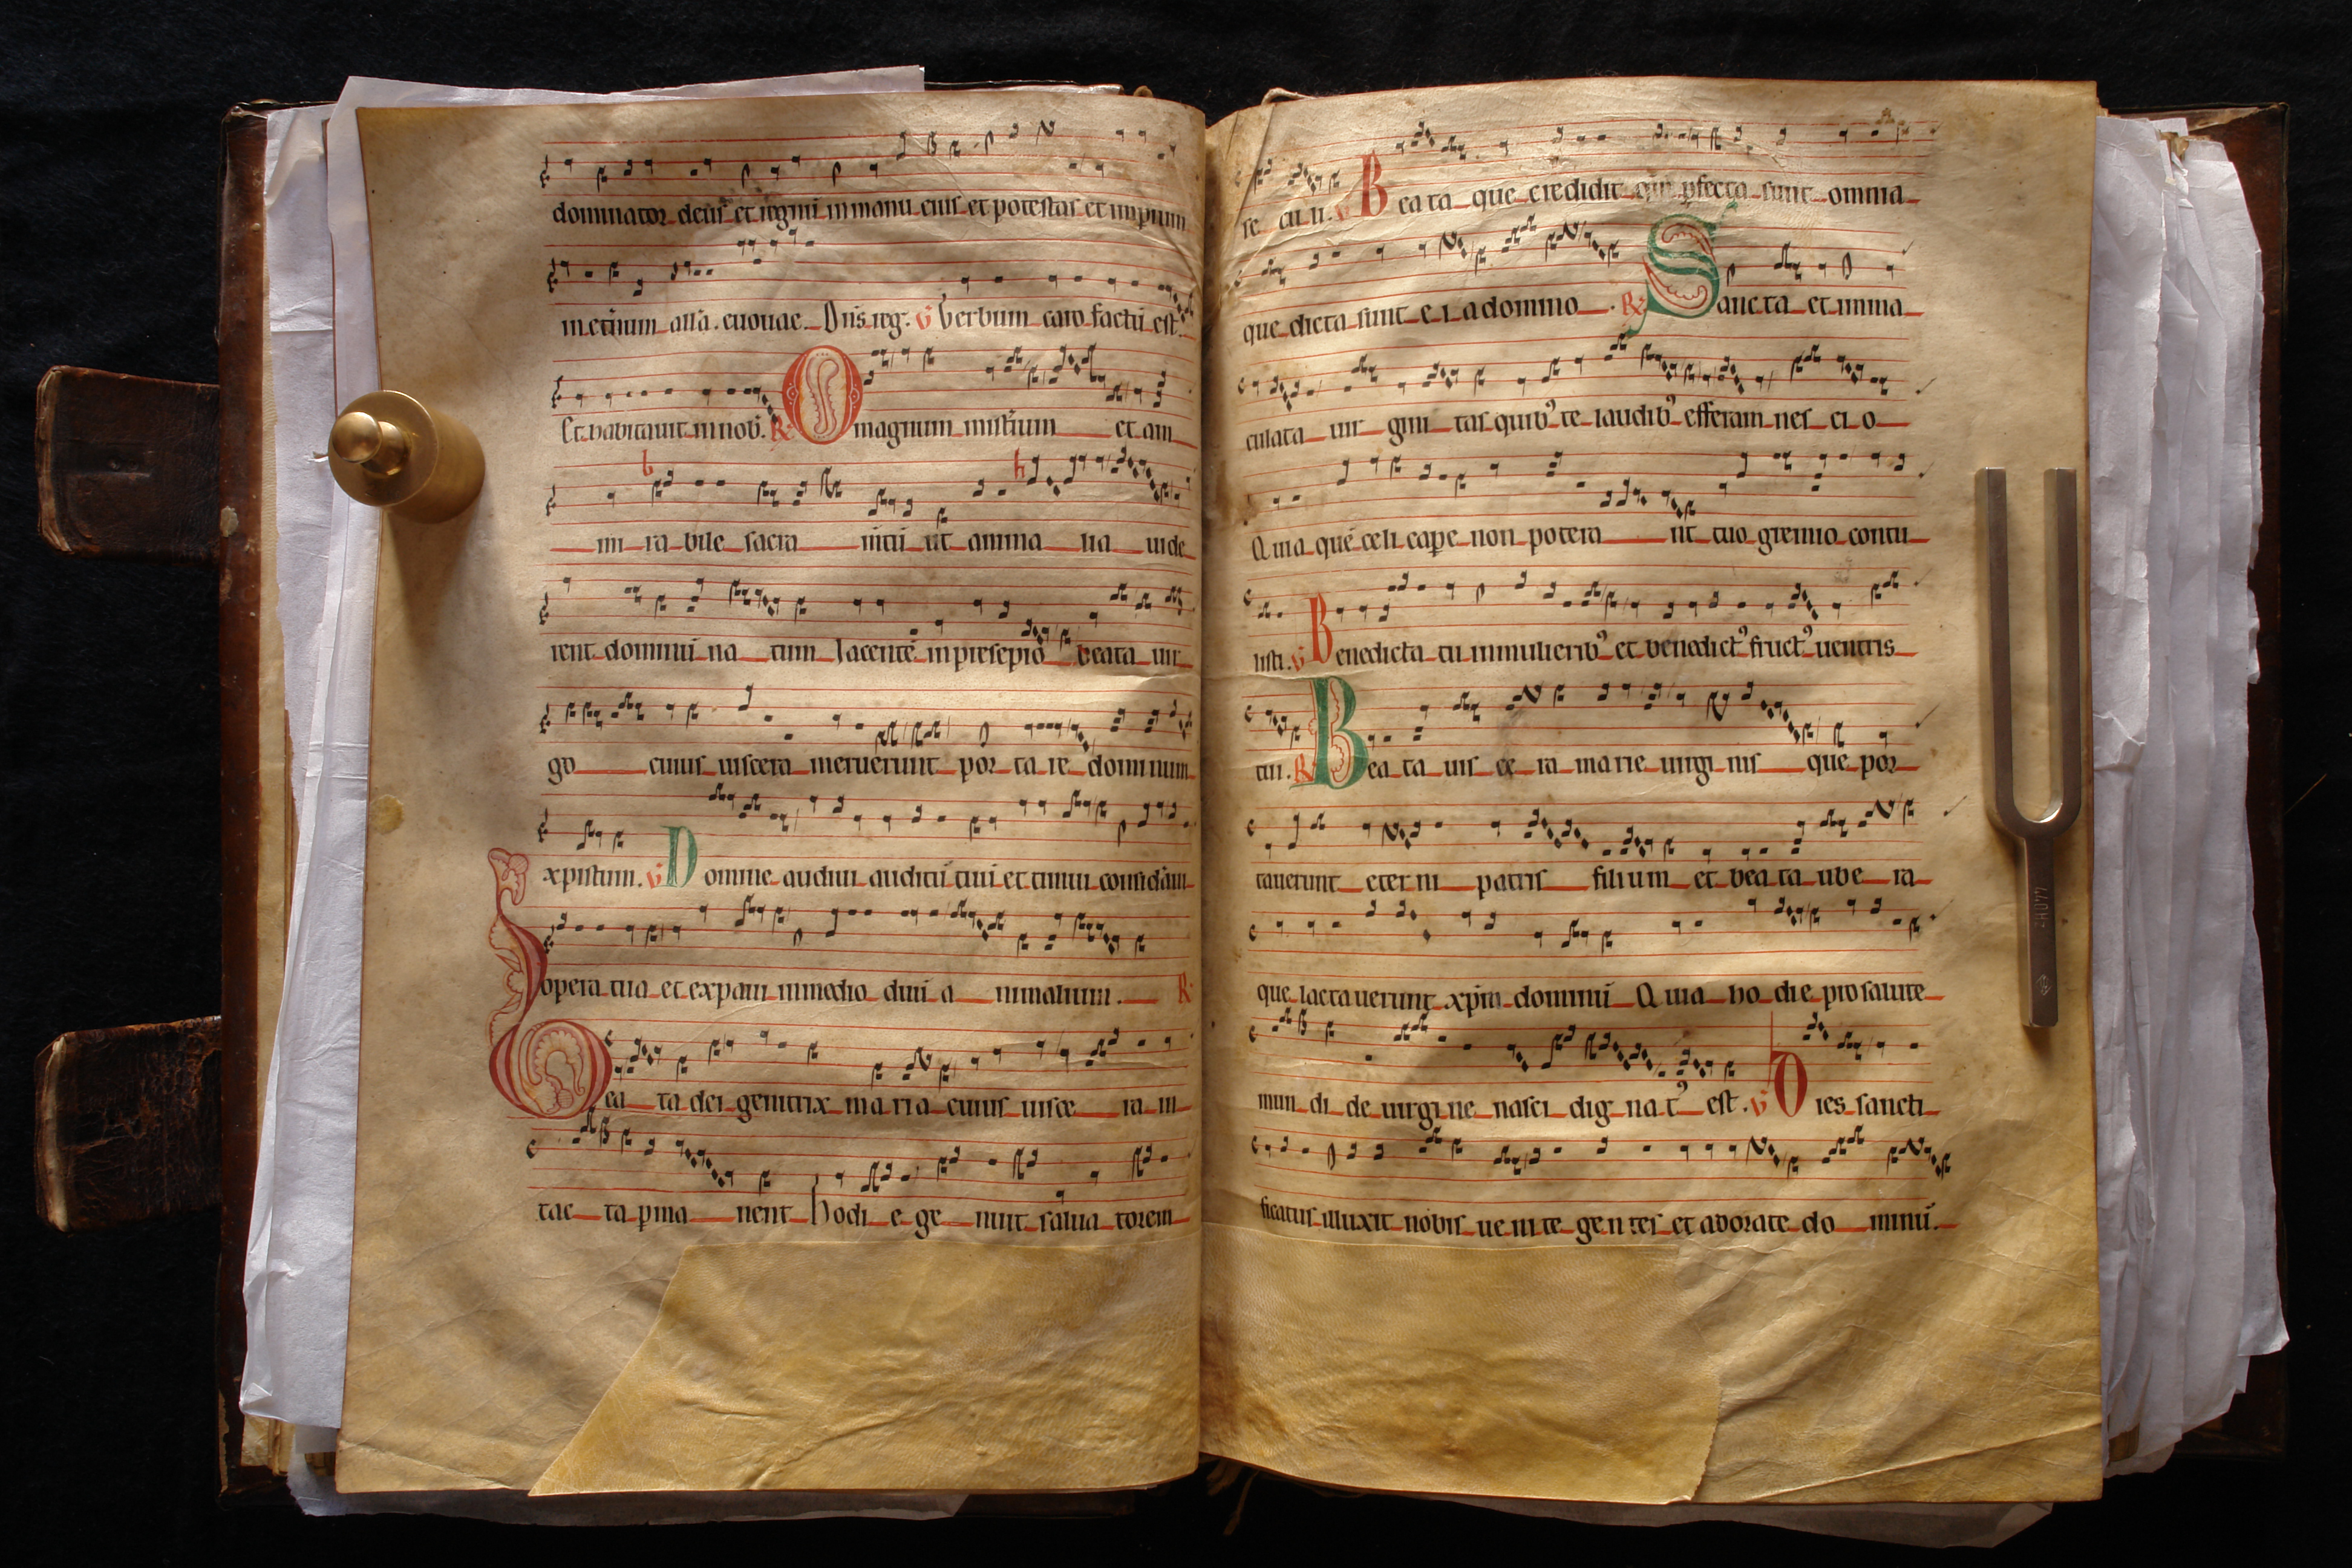 dominator deus et regnũ in manu eius et potestas et imperium
in et̃num all'a. euouae. Dn̄s reg. v̄ Verbum caro factũ est.
Et habitauit in nob̃. R O magnum mist̃ium et am
mi ra bile sacra m̃tũ ut anima lia uide
rent dominũ na tum Iacentẽ in presepio beata uir
go cuius uiscera meruerunt por ta re dominum
xpistum. v̄ Domine audiui auditũ tuũ et timui consid̃aui
opera tua et expaui in medio duũ a nimalium. R
Bea ta dei genitrix maria cuius uisce ra in
tac ta p̱ma nent hodi e ge nuit salua torem
se cu li. v̄ Bea ta que credidit qm̄ p̱fecta sunt omnia
que dicta sunt e i a domino. R Sancta et imma
culata uir gini tas quib⁹ te laudib⁹ efferam nes ci o
Quia quẽ celi cap̱e non potera nt tuo gremio contu
listi. v̄ Benedicta tu in mulierib⁹ et benedict⁹ fruct⁹ uentris
tui. R Bea ta uis ce ra marie uirgi nis que por
tauerunt eter ni patris filium et bea ta ube ra
que lacta uerunt xp̄m dominũ Quia ho die pro salute
mun di de uirgi ne nasci dig na t' est. v̄ Dies sancti
ficatus illuxit nobis ue ni te gen tes et adorate do minũ.
440HZ